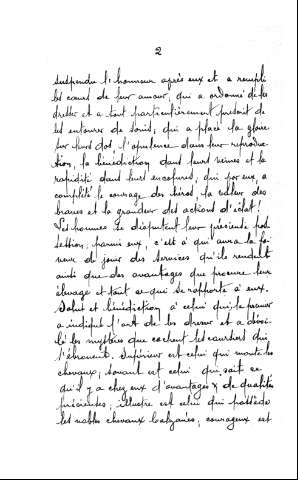 2
suspendu l'honneur après eux et a rempli
les cœurs de leur amour, qui a ordonné de les
dresser et a tout particulièrement prescrit de
les entourer de soins, qui a placé la gloire
sur leurs dos, l'opulence dans leur reproduc-
tion, la bénédiction dans leurs veines et la
rapidité dans leurs encolures, qui par eux a
complété le courage des héros, la valeur des
braves et la grandeur des actions d'éclat!
Les hommes se disputent leur précieuse pos-
session; parmi eux, c'est à qui aura la fa-
veur de jouir des services qu'ils rendent
ainsi que des avantages que procure leur
élevage et tout ce qui se rapporte à eux.
Salut et bénédiction à celui qui, le premier
a indiqué l'art de les dresser et a dévoi-
lé les mystères que cachent les coursiers qui
l'ébrouent. Supérieur est celui qui monte les
chevaux; savant est celui qui sait ce
qu'il y a chez eux d'avantages & de qualités
précieuses; illustre est celui qui possède
les nobles chevaux balzanés; courageux est